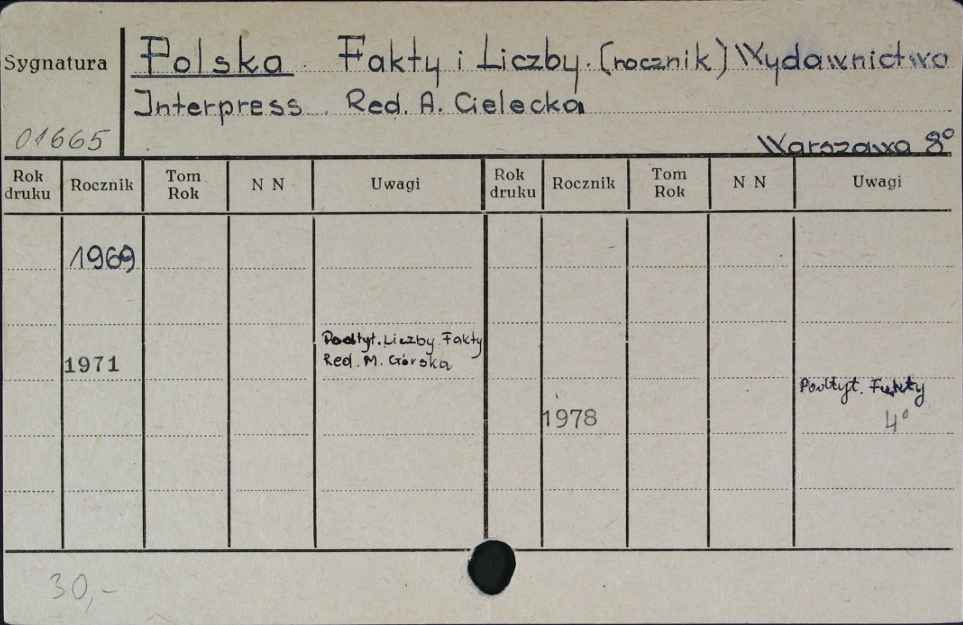 Sygnatura
Polska Fakty i Liczby. (rocznik) Wydawnictwo
Interpress. Red. A. Cielecka
01665
Warszawa 8°
Rok druku Rocznik Tom Rok N N Uwagi Rok druku Rocznik Tom Rok N N Uwagi
1969
Podtyt. Liczby Fakty
1971 Red. M. Górska
Podtyt. Fakty
1978 4°
30,-